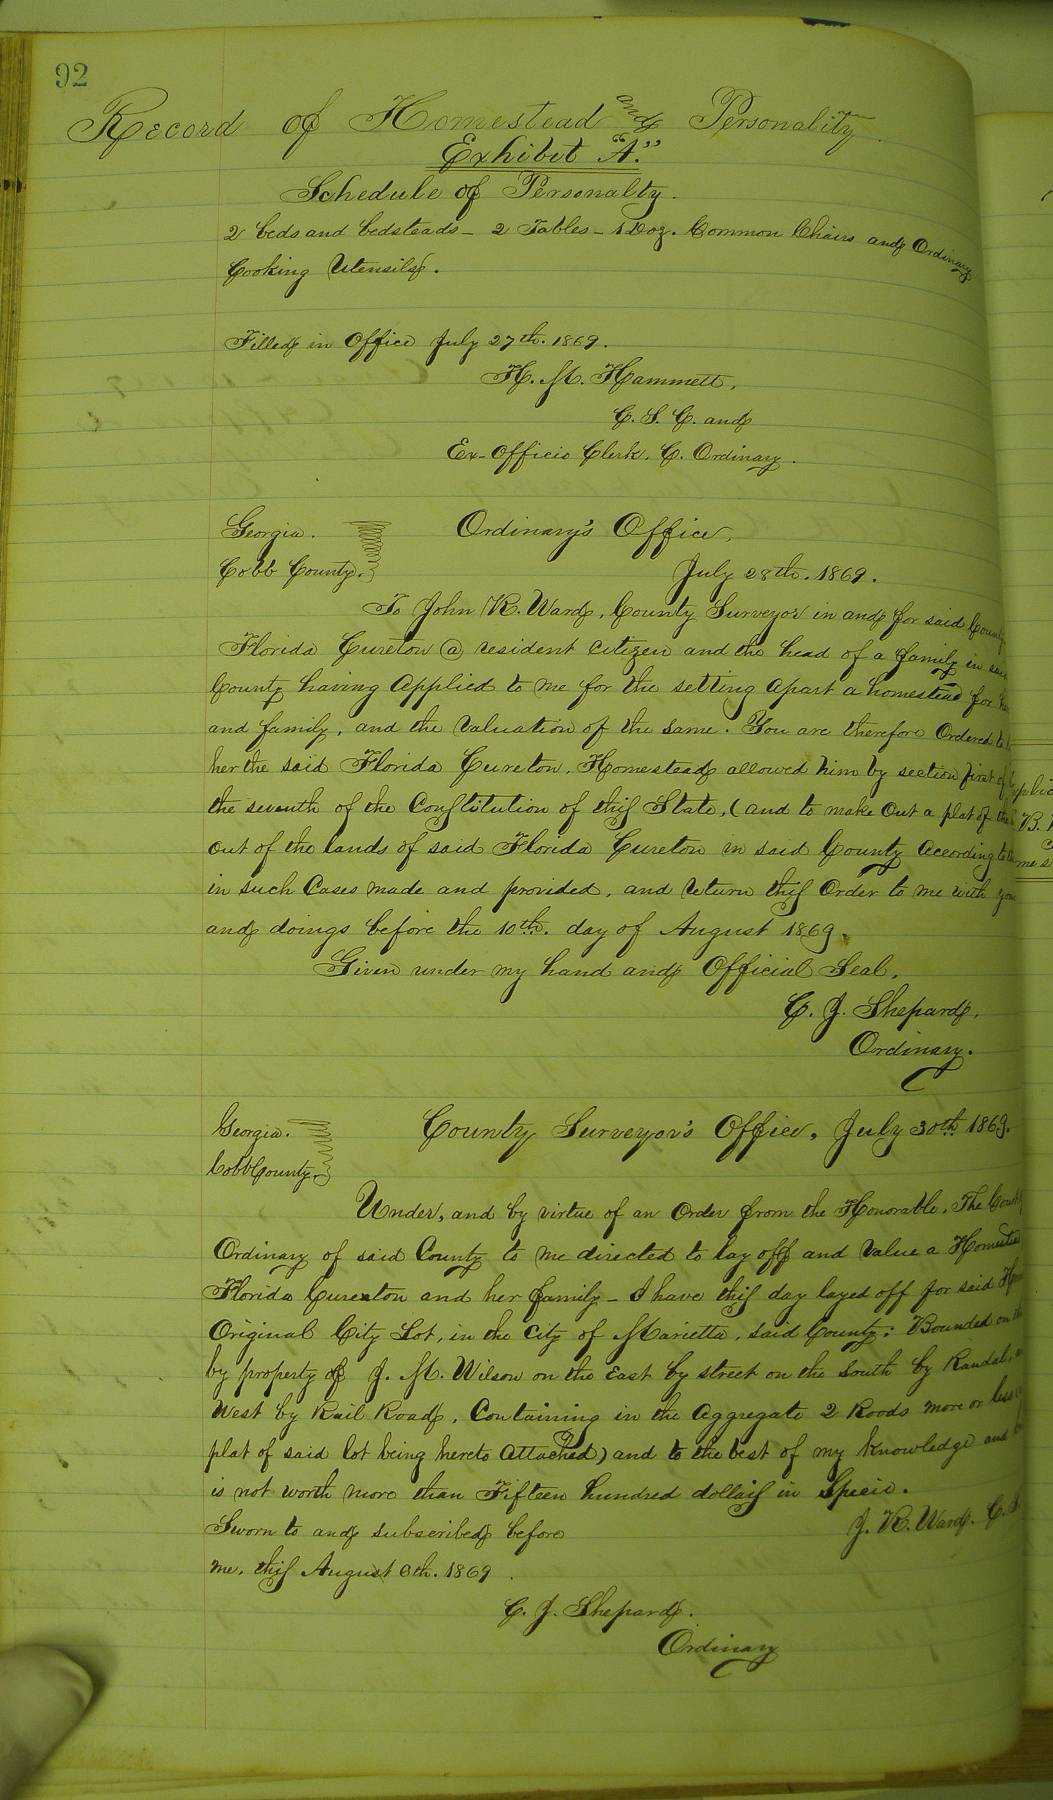 92
Record of Homestead and Personality
Exhibet "A."
Schedule of Personalty.
2 beds and bedsteads - 2 Tables - 1 Doz. Common Chairs and Ordinary
Cooking Utensils.
Filled in Office July 27th. 1869.
H. M. Hammett,
C. S. C. and
Ex-Officio Clerk. C. Ordinary.
Georgia.
Cobb County.
Ordinary's Office,
July 28th. 1869.
To John R. Ward, County Surveyor in and for said County
Florida Cureton @ resident citizen and the head of a family in
County having applied to me for the setting apart a homestead for
and family, and the valuation of the same. You are therefore Ordered to
her the said Florida Cureton. Homestead allowed him by section first of
the seventh of the Constitution of this State, (and to make out a plat of the
out of the lands of said Florida Cureton in said County according to
in such Cases made and provided, and return this Order to me with
and doings before the 10th. day of August 1869.
Given under my hand and Official Seal.
C. J. Shepard,
Ordinary.
Georgia.
Cobb County.
County Surveyor's Office, July 30th 1869.
Under, and by virtue of an Order from the Honorable. The
Ordinary of said County to me directed to lay off and value a
Florida Cureton and her family - I have this day layed off for said
Original City Lot, in the City of Marietta, said County: Bounded on
by property of J. M. Wilson on the East by street on the South by Randal,
West by Rail Road, Containing in the aggregate 2 Roods more or less
plat of said lot being hereto attached) and to the best of my knowledge and
is not worth more than Fifteen hundred dollars in Specie.
Sworn to and subscribed before
J. R. Ward. C.
me, this August 6th. 1869.
C. J. Shepard.
Ordinary